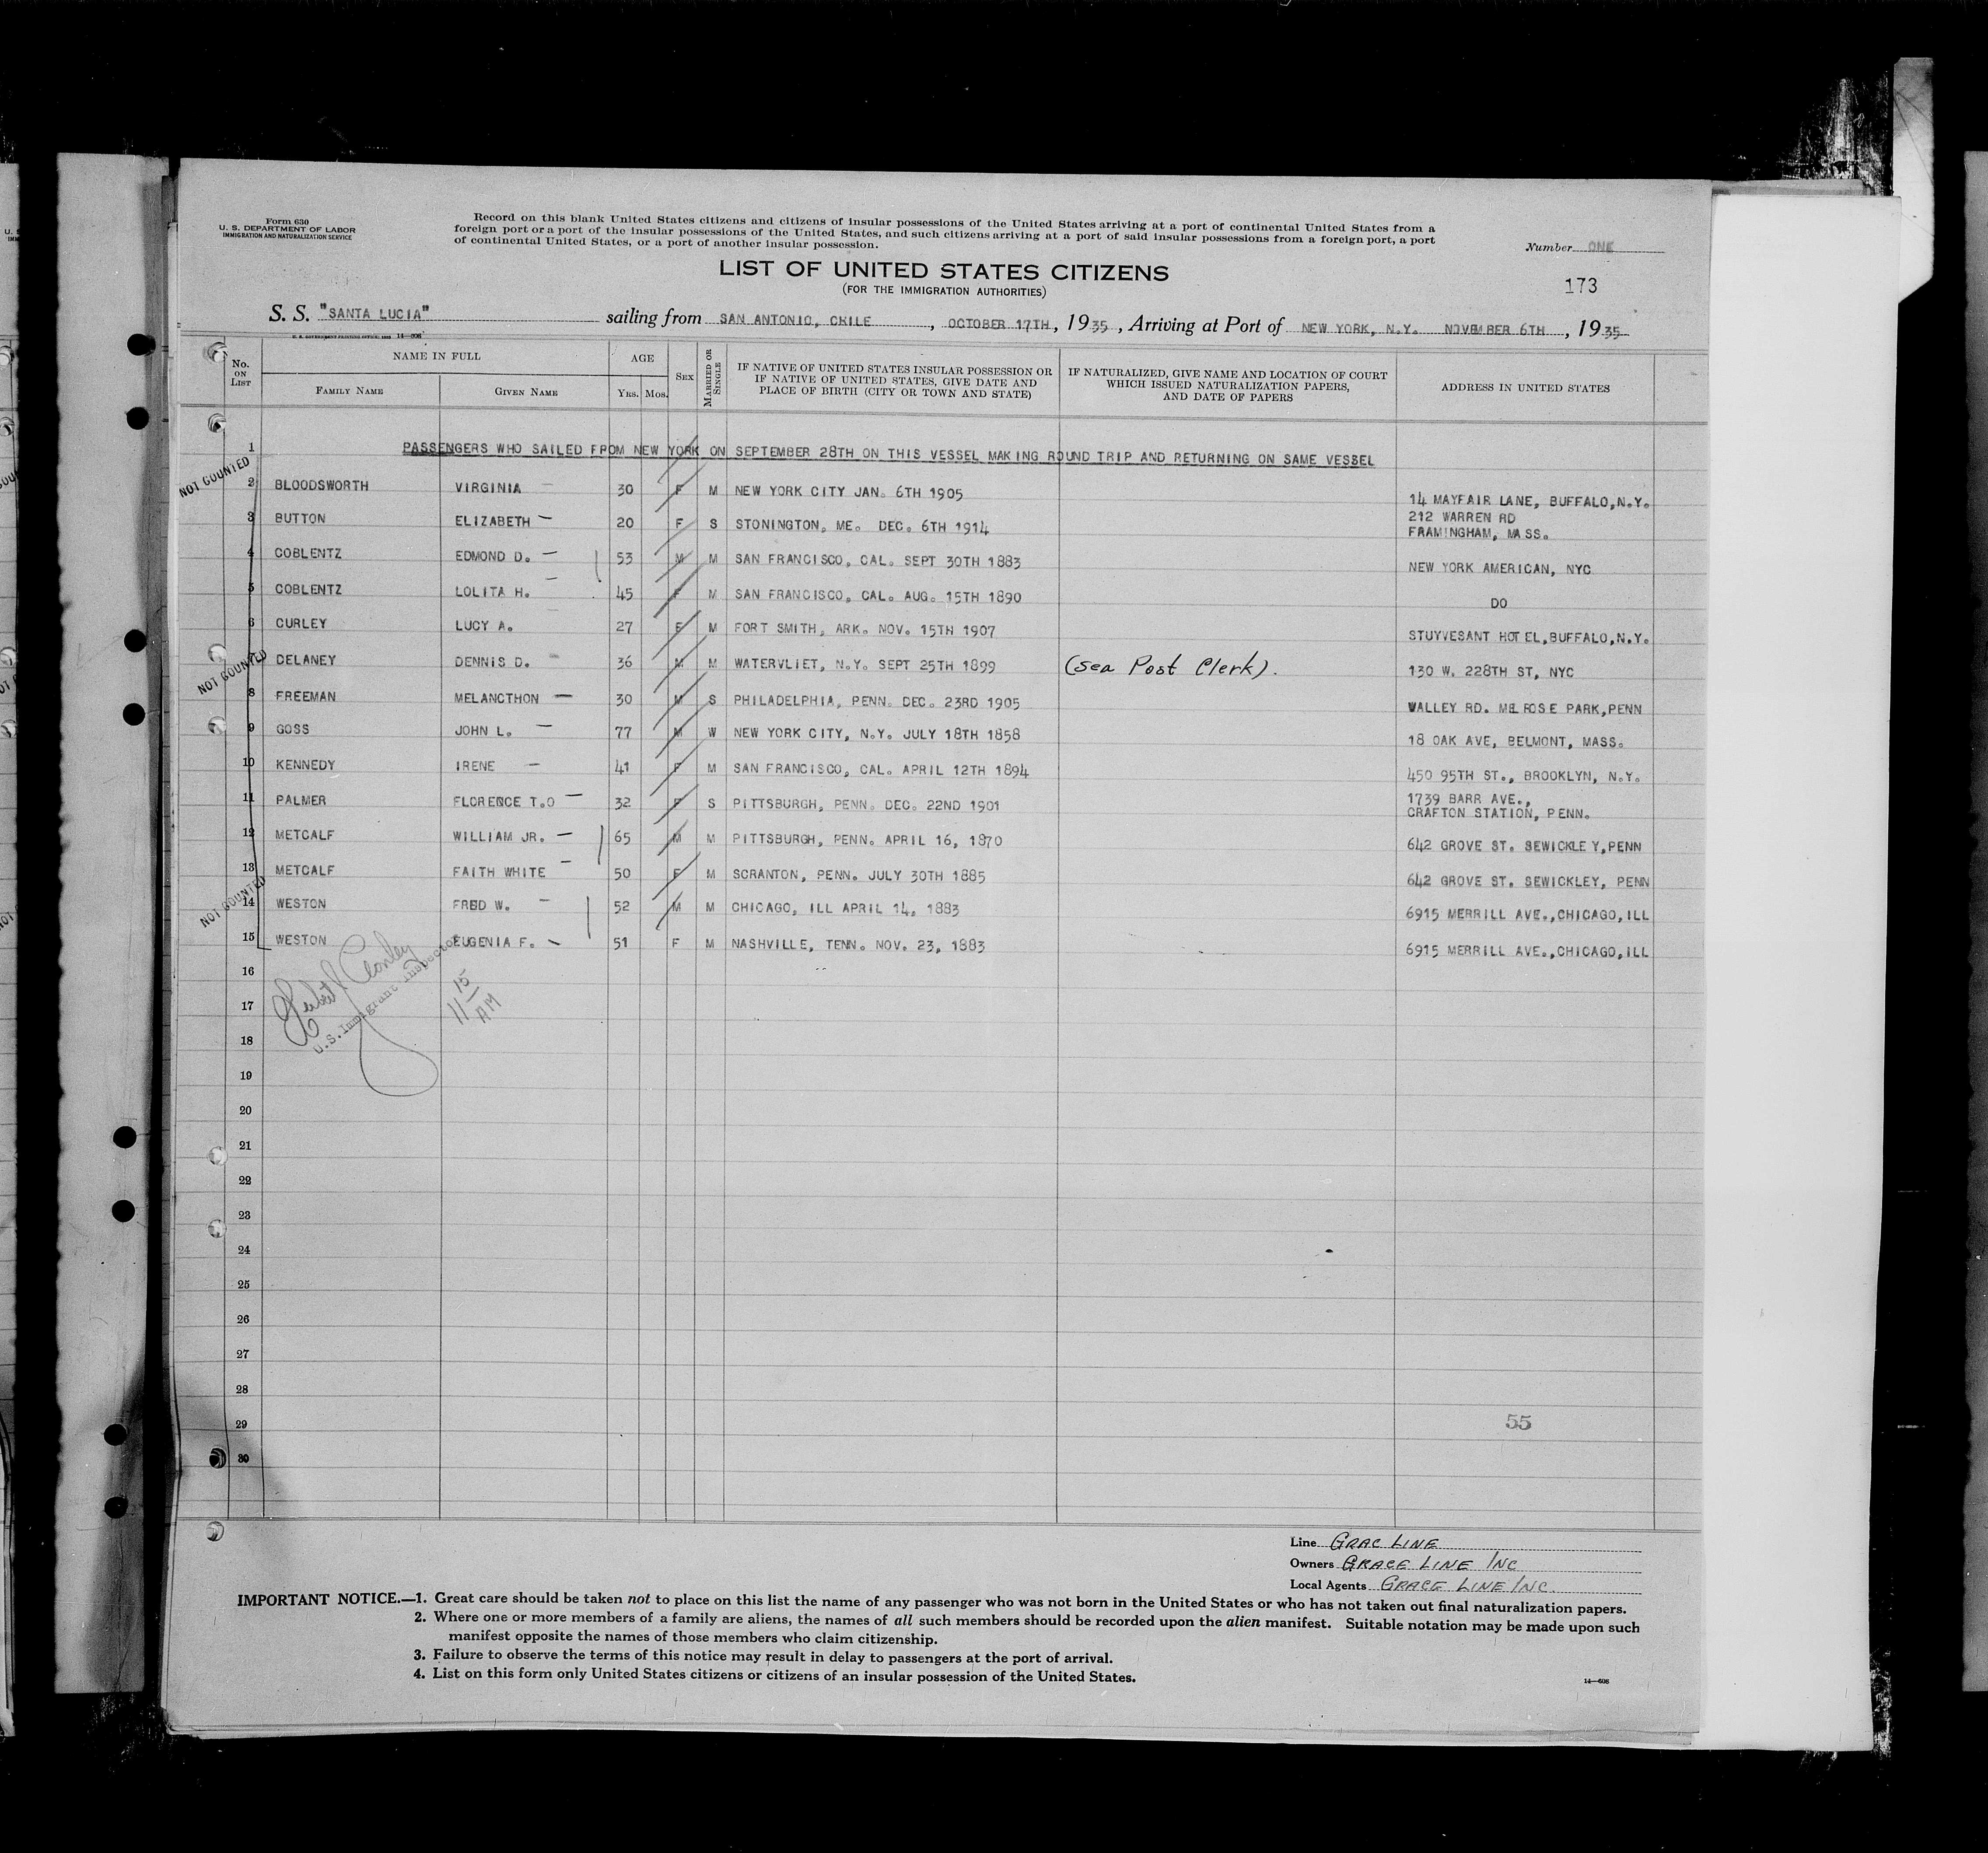 Form 630
U. S. DEPARTMENT OF LABOR
IMMIGRATION AND NATURALIZATION SERVICE
Record on this blank United States citizens and citizens of insular possessions of the United States arriving at a port of continental United States from a
foreign port or a port of the insular possessions of the United States, and such citizens arriving at a port of said insular possessions from a foreign port, a port
of continental United States, or a port of another insular possession.
Number ONE
LIST OF UNITED STATES CITIZENS
(FOR THE IMMIGRATION AUTHORITIES)
173
S. S. "SANTA LUCIA" sailing from SAN ANTONIO, CHILE, OCTOBER 17TH, 1935, Arriving at Port of NEW YORK, N.Y. NOVEMBER 6TH, 1935
No. ON LIST
NAME IN FULL
FAMILY NAME
GIVEN NAME
AGE
YRS. MOS.
SEX
MARRIED OR SINGLE
IF NATIVE OF UNITED STATES INSULAR POSSESSION OR
IF NATIVE OF UNITED STATES, GIVE DATE AND
PLACE OF BIRTH (CITY OR TOWN AND STATE)
IF NATURALIZED, GIVE NAME AND LOCATION OF COURT
WHICH ISSUED NATURALIZATION PAPERS,
AND DATE OF PAPERS
ADDRESS IN UNITED STATES
1 PASSENGERS WHO SAILED FROM NEW YORK ON SEPTEMBER 28TH ON THIS VESSEL MAKING ROUND TRIP AND RETURNING ON SAME VESSEL
NOT COUNTED
2 BLOODSWORTH VIRGINIA — 30 F M NEW YORK CITY JAN. 6TH 1905 14 MAYFAIR LANE, BUFFALO,N.Y.
3 BUTTON ELIZABETH — 20 F S STONINGTON, ME. DEC. 6TH 1914 212 WARREN RD
FRAMINGHAM, MASS.
4 COBLENTZ EDMOND D. — 53 M M SAN FRANCISCO, CAL. SEPT 30TH 1883 NEW YORK AMERICAN, NYC
5 COBLENTZ LOLITA H. — 45 F M SAN FRANCISCO, CAL. AUG. 15TH 1890 DO
6 CURLEY LUCY A. 27 F M FORT SMITH, ARK. NOV. 15TH 1907 STUYVESANT HOTEL,BUFFALO,N.Y.
NOT COUNTED
7 DELANEY DENNIS D. — 36 M M WATERVLIET, N.Y. SEPT 25TH 1899 (Sea Post Clerk). 130 W. 228TH ST, NYC
8 FREEMAN MELANCTHON — 30 M S PHILADELPHIA, PENN. DEC. 23RD 1905 VALLEY RD. MELROSE PARK,PENN
9 GOSS JOHN L. — 77 M W NEW YORK CITY, N.Y. JULY 18TH 1858 18 OAK AVE, BELMONT, MASS.
10 KENNEDY IRENE — 41 F M SAN FRANCISCO, CAL. APRIL 12TH 1894 450 95TH ST., BROOKLYN, N.Y.
11 PALMER FLORENCE T.O — 32 F S PITTSBURGH, PENN. DEC. 22ND 1901 1739 BARR AVE.,
CRAFTON STATION, PENN.
12 METCALF WILLIAM JR. — 65 M M PITTSBURGH, PENN. APRIL 16, 1870 642 GROVE ST. SEWICKLEY,PENN
13 METCALF FAITH WHITE — 50 F M SCRANTON, PENN. JULY 30TH 1885 642 GROVE ST. SEWICKLEY, PENN
NOT COUNTED
14 WESTON FRED W. — 52 M M CHICAGO, ILL APRIL 14, 1883 6915 MERRILL AVE.,CHICAGO,ILL
15 WESTON EUGENIA F. — 51 F M NASHVILLE, TENN. NOV. 23, 1883 6915 MERRILL AVE.,CHICAGO,ILL
U.S. Immigrant Inspector
11 15
AM
16
17
18
19
20
21
22
23
24
25
26
27
28
29
55
30
Line GRAC LINE
Owners GRACE LINE INC
Local Agents GRACE LINE INC.
IMPORTANT NOTICE.—1. Great care should be taken not to place on this list the name of any passenger who was not born in the United States or who has not taken out final naturalization papers.
2. Where one or more members of a family are aliens, the names of all such members should be recorded upon the alien manifest. Suitable notation may be made upon such
manifest opposite the names of those members who claim citizenship.
3. Failure to observe the terms of this notice may result in delay to passengers at the port of arrival.
4. List on this form only United States citizens or citizens of an insular possession of the United States.
14—608